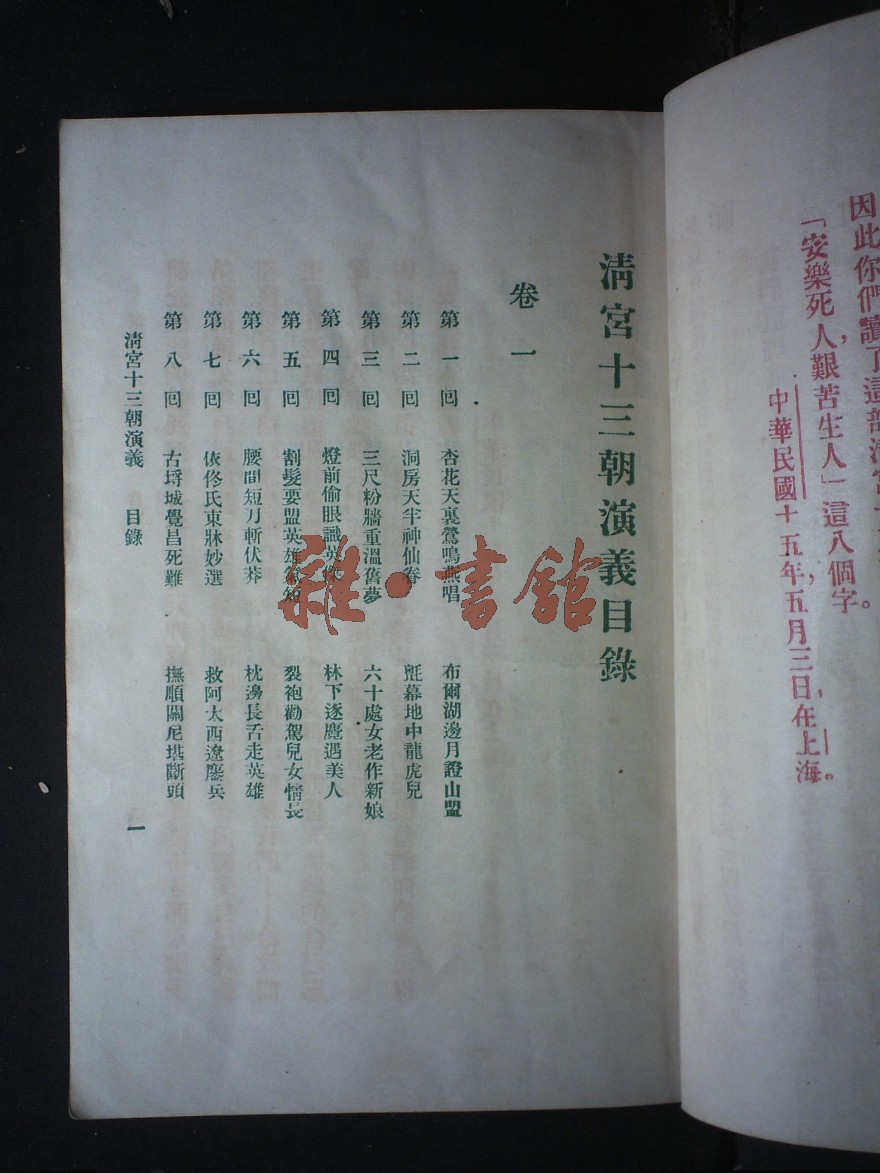 因此你們讀了這部清宮十
「安樂死人，艱苦生人」這八個字。
中華民國十五年，五月三日，在上海。
清宮十三朝演義目錄
卷一
第一回 杏花天裏鶯鳴燕唱 布爾湖邊月證山盟
第二回 洞房天半神仙眷 氈幕地中龍虎兒
第三回 三尺粉牆重溫舊夢 六十處女老作新娘
第四回 燈前偷眼識英傑 林下逐鹿遇美人
第五回 割髮要盟英雄氣短 裂袍勸駕兒女情長
第六回 腰間短刀斬伏莽 枕邊長舌走英雄
第七回 依佟氏東牀妙選 救阿太西遼鏖兵
第八回 古埒城覺昌死難 撫順關尼堪斷頭
清宮十三朝演義 目錄
一
雜·書館